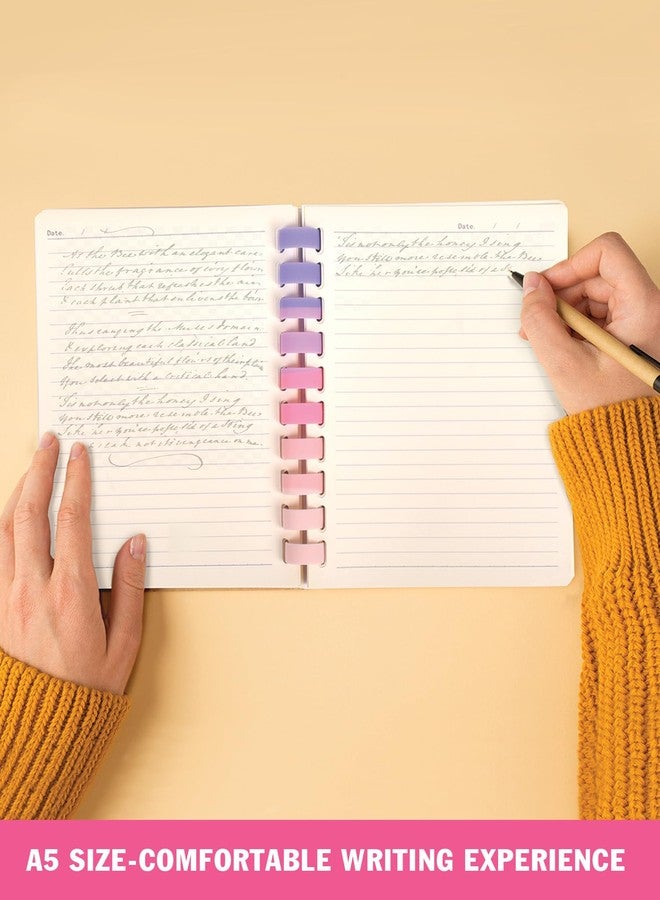 Date. / /
As the Bee with an elegant care.
Culls the fragrance of every flow
Each shrub that refreshes the
& each plant that enlivens the
Thus ranging the Muses domain.
& exploring each classical land
The most beautiful flowers of the
You select with a critical hand.
Tis not only the honey I sing
You still more resemble the Bee
Like her you're possess'd of a Sting
not its vengeance on me.
Date. / /
Tis not only the honey I sing
You still more resemble the Bee
Like her you're possess'd of a S
A5 SIZE-COMFORTABLE WRITING EXPERIENCE